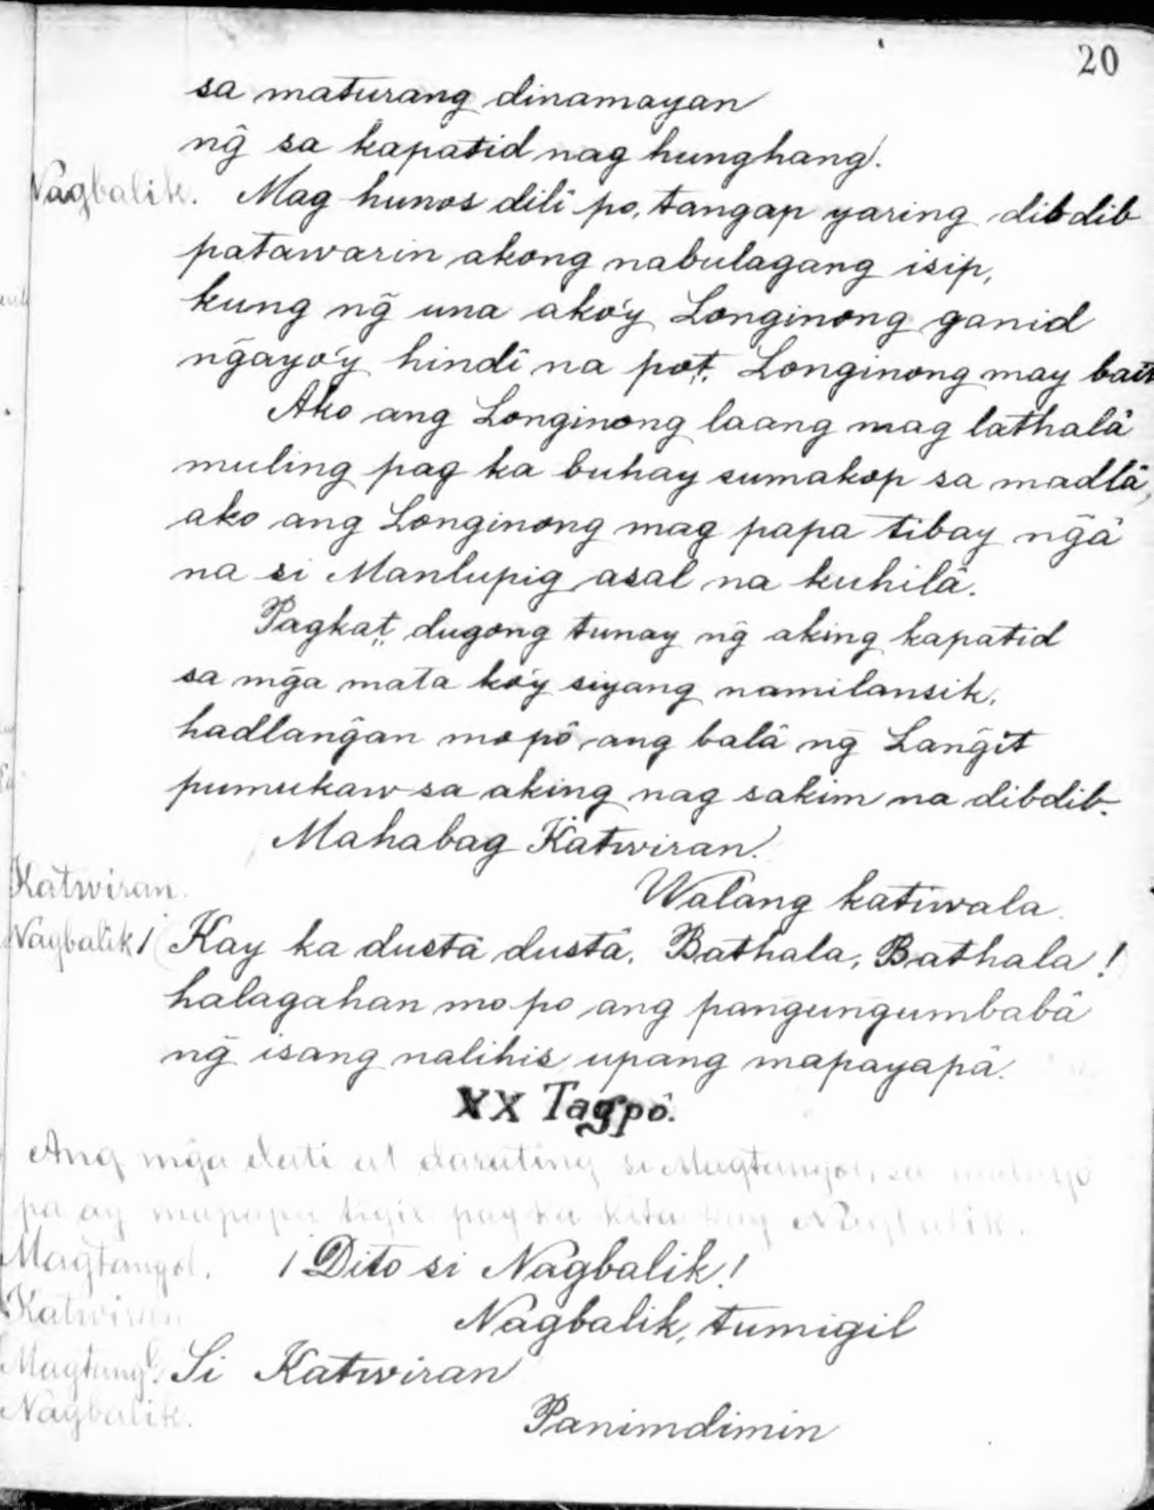 20
sa maturang dinamayan
ng̃ sa kapatid nag hunghang.
Nagbalik. Mag hunos dili po, tangap yaring dibdib
patawarin akong nabulagang isip,
kung ng̃ una ako'y Longinong ganid
ng̃ayo'y hindî na pot. Longinong may bait
Ako ang Longinong laang mag lathalâ
muling pag ka buhay sumakop sa madlâ,
ako ang Longinong mag papa tibay ng̃â
na si Manlupig asal na kuhilâ.
Pagkat, dugong tunay ng̃ aking kapatid
sa mg̃a mata ko'y siyang namilansik,
hadlang̃an mo pô ang balà ng̃ Lang̃it
pumukaw sa aking nag sakim na dibdib.
Mahabag Katwiran.
Katwiran. Walang katiwala.
Nagbalik ¡Kay ka dustâ dustâ, Bathala, Bathala!
halagahan mo po ang pang̃ung̃umbabâ
ng̃ isang nalihis upang mapayapâ.
XX Tagpô.
Ang mg̃a dati at darating si Magtangol, sa
pa ay kita kay Nagbalik.
Magtangol. ¡Dito si Nagbalik!
Katwiran Nagbalik, tumigil
Magtangl. Si Katwiran
Nagbalik. Panimdimin